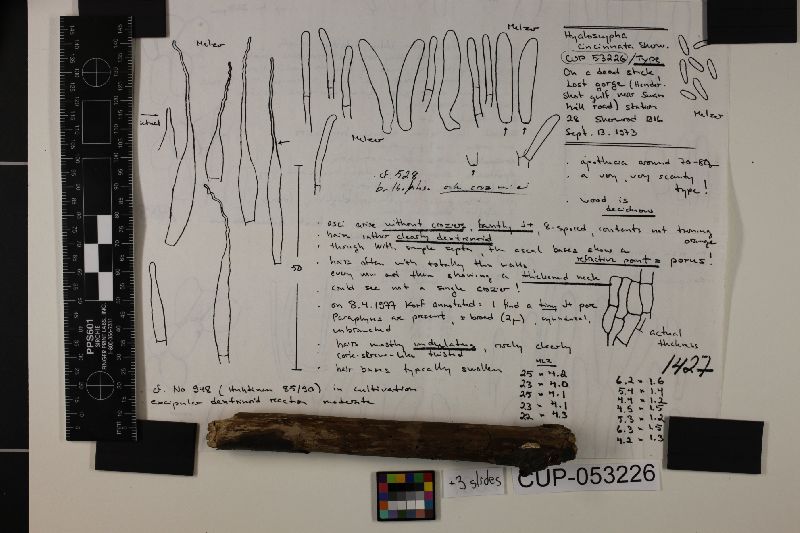 Melzer
Melzer
Melzer
Melzer
Hyaloscypha
cincinnata Show.
CUP 53226 / Type
On a dead stick
Lost gorge (Hender-
shot gulf near Swan
hill road) station
28 Sherwood
Sept. 13. 1973
cf. 528
apothecia around 70-80
a very, very scanty
type!
wood is
deciduous
asci arise without croziers, faintly J+, 8-spored, contents not turning
orange
hairs rather clearly dextrinoid
though with simple septa, the ascal bases show a
refractive point = porus!
hairs often with totally thin walls,
every now and then showing a thickened neck
could see not a single crozier!
on 8.4.1977 Korf annotated: I find a tiny J+ pore
Paraphyses are present, ± broad (2µ), cylindrical,
unbranched
hairs mostly undulating, rarely clearly
cork-screw-like twisted
hair bases typically swollen
50
actual
thickness
1427
MLZ
25 × 4.2
23 × 4.0
25 × 4.1
23 × 4.1
22 × 4.3
6.2 × 1.6
5.4 × 1.4
4.4 × 1.2
4.5 × 1.5
5.3 × 1.2
6.3 × 1.5
4.2 × 1.3
cf. No 948 (Huhtinen 85/90) in cultivation
excipular dextrinoid reaction moderate
PPS601
+3 slides
CUP-053226